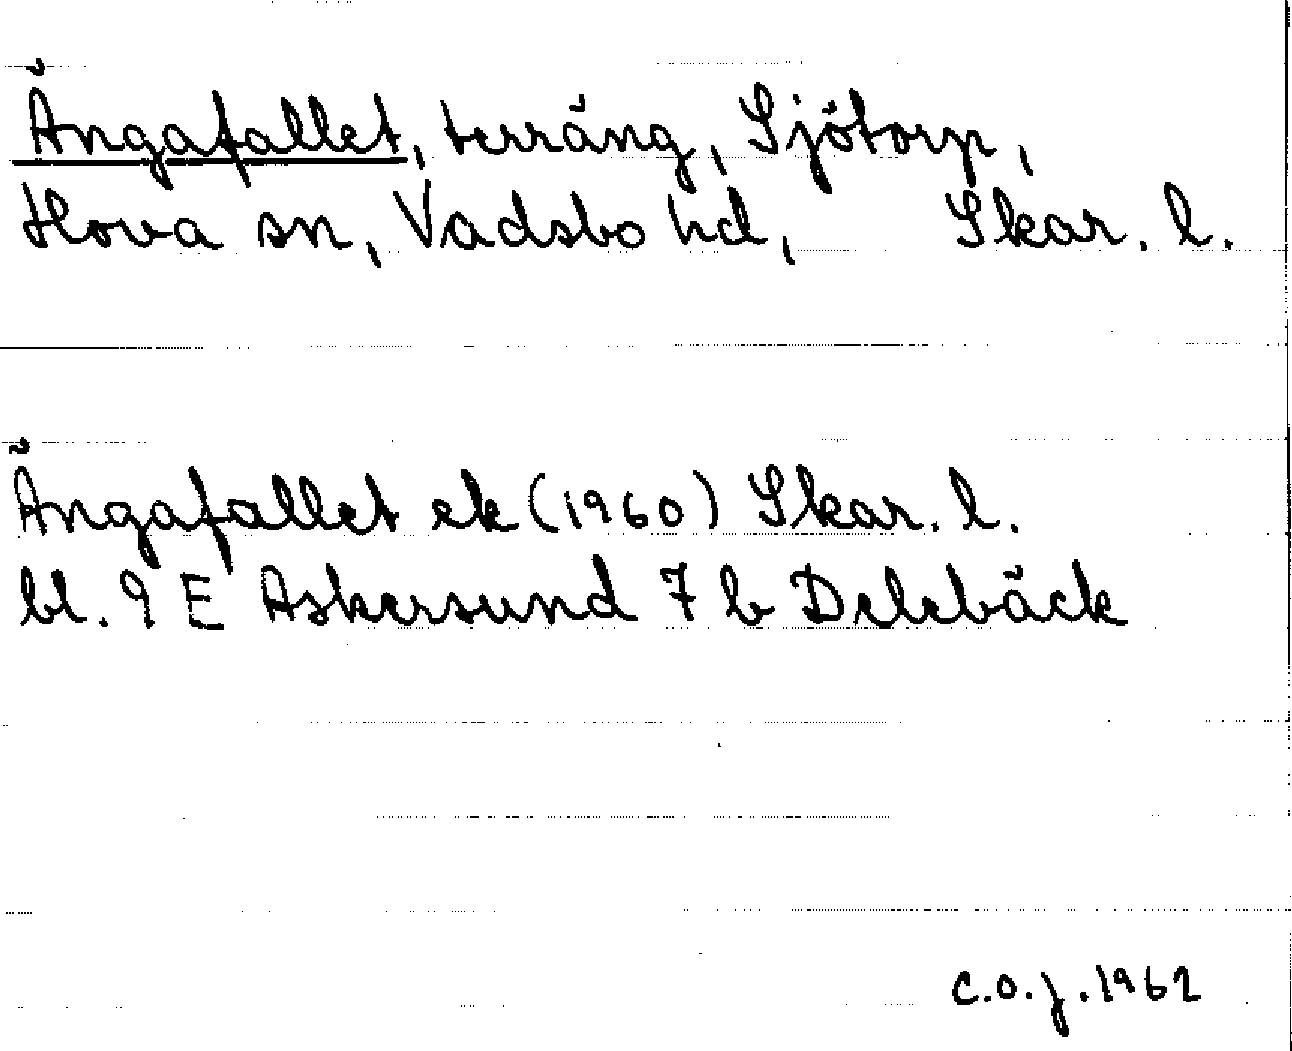 Ängafallet, terräng, Sjötorp,
Hova sn, Vadsbo hd, Skar. l.
Ängafallet ek (1960) Skar. l.
bl. 9 E Askersund 7 b Delebäck
C.O.J. 1962